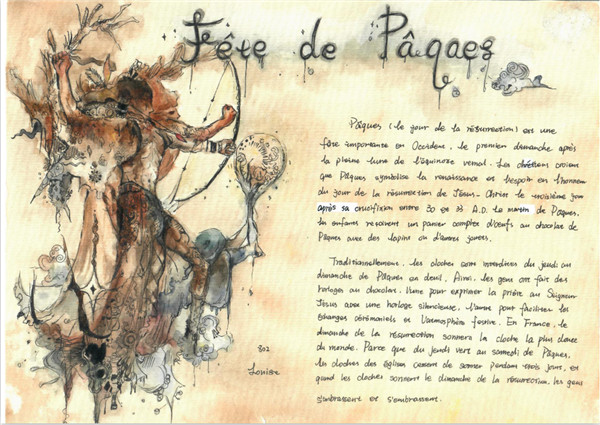 Fête de Pâques
Pâques (le jour de la résurrection) est une
fête importante en Occident, le premier dimanche après
la pleine lune de l'équinoxe vernal. Les chrétiens croient
que Pâques symbolise la renaissance et l'espoir en l'honneur
du jour de la résurrection de Jésus-Christ le troisième jour
après sa crucifixion entre 30 et 33 A.D. Le matin de Pâques,
les enfants reçoivent un panier complet d'oeufs au chocolat de
Pâques avec des lapins ou d'autres jouets.
Traditionnellement, les cloches sont interdites du jeudi au
dimanche de Pâques au deuil. Ainsi, les gens ont fait des
horloges au chocolat. l'une pour exprimer la prière au Seigneur
Jésus avec une horloge silencieuse, l'autre pour faciliter les
échanges cérémoniels et l'atmosphère festive. En France, le
dimanche de la résurrection sonnera la cloche la plus douce
du monde. Parce que du jeudi vert au samedi de Pâques,
les cloches des églises cessent de sonner pendant trois jours, et
quand les cloches sonnent le dimanche de la résurrection, les gens
s'embrassent et s'embrassent.
802
Louise